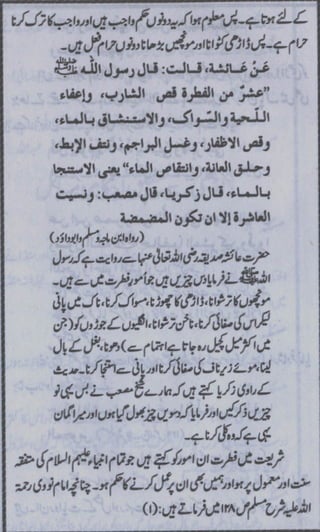 کے لئے ہوتا ہے۔ پس معلوم ہوا کہ یہ دونوں حکم واجب ہیں اور واجب کا ترک کرنا
حرام ہے۔ پس داڑھی کٹوانا اور مونچھیں بڑھانا دونوں حرام فعل ہیں۔
عَنْ عَائشة، قالت: قال رسول اللہ ﷺ
"عشرٌ من الفطرة قص الشارب، وإعفاء
اللحية والسّواک، والاستنشاق بالماء،
وقص الاظفار، وغسل البراجم، ونتف الإبط،
وحلق العانة، وانتقاص الماء" یعنی الاستنجا
بالماء، قال زکریا، قال مصعب: ونسیت
العاشرة إلا ان تکون المضمضة
(رواہ ابن ماجہ و مسلم و ابوداؤد)
حضرت عائشہ صدیقہ رضی اللہ تعالیٰ عنہا سے روایت ہے کہ رسول
اللہ ﷺ نے فرمایا دس چیزیں ہیں جو امور فطرت میں سے ہیں۔
مونچھوں کا ترشوانا، داڑھی کا چھوڑنا، مسواک کرنا، ناک میں پانی
لیکر اس کی صفائی کرنا، ناخن ترشوانا، انگلیوں کے جوڑوں کو (جن
میں اکثر میل کچیل رہ جاتا ہے اہتمام سے) دھونا، بغل کے بال
لینا، موئے زیر ناف کی صفائی کرنا، اور پانی سے استنجا کرنا۔ حدیث
کے راوی زکریا کہتے ہیں کہ ہمارے شیخ مصعب نے بس یہی نو
چیزیں ذکر کیں اور فرمایا کہ دسویں چیز بھول گیا ہوں اور میرا گمان
یہی ہے کہ وہ کلی کرنا ہے۔
شریعت میں فطرت ان امور کو کہتے ہیں جو تمام انبیاء علیہم السلام کی متفقہ
سنت اور معمول بہ ہو اور ہمیں بھی ان پر عمل کرنے کا حکم ہو۔ چنانچہ امام نووی رحمۃ
اللہ علیہ شرح مسلم ص ۱۲۸ میں فرماتے ہیں: (۱)